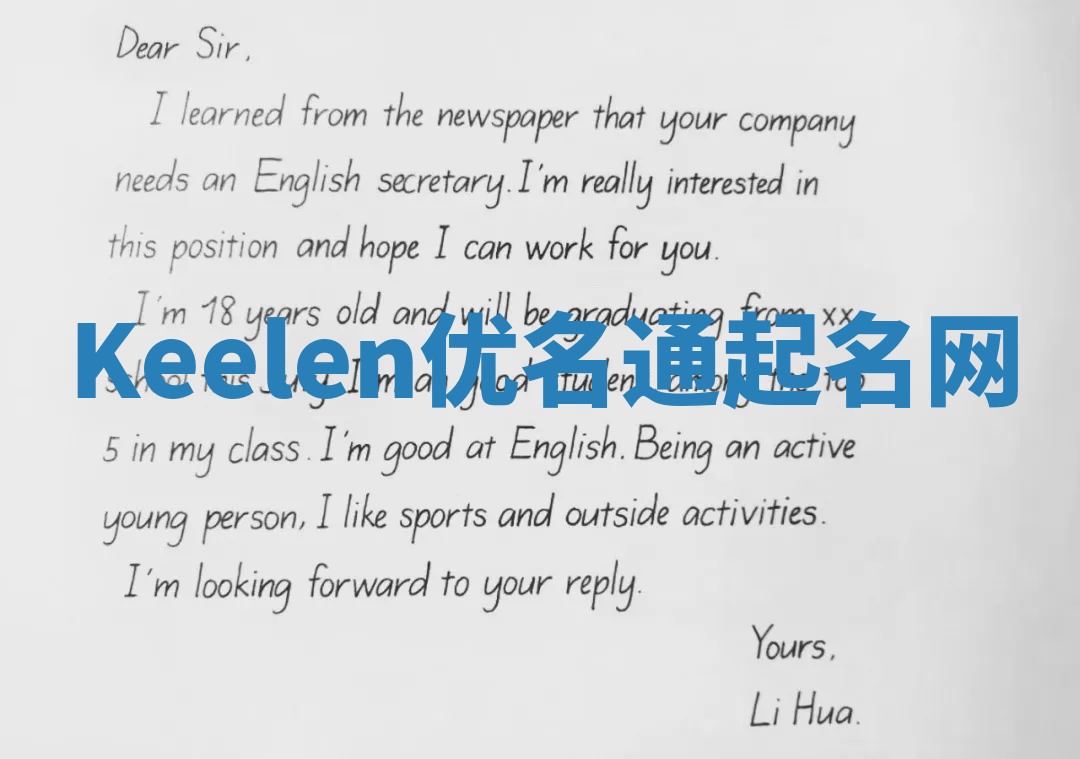 Dear Sir,
I learned from the newspaper that your company
needs an English secretary. I'm really interested in
this position and hope I can work for you.
I'm 18 years old and will be graduating from xx
Keelen优名通起名网
school this July. I'm a good student among the top
5 in my class. I'm good at English. Being an active
young person, I like sports and outside activities.
I'm looking forward to your reply.
Yours,
Li Hua.